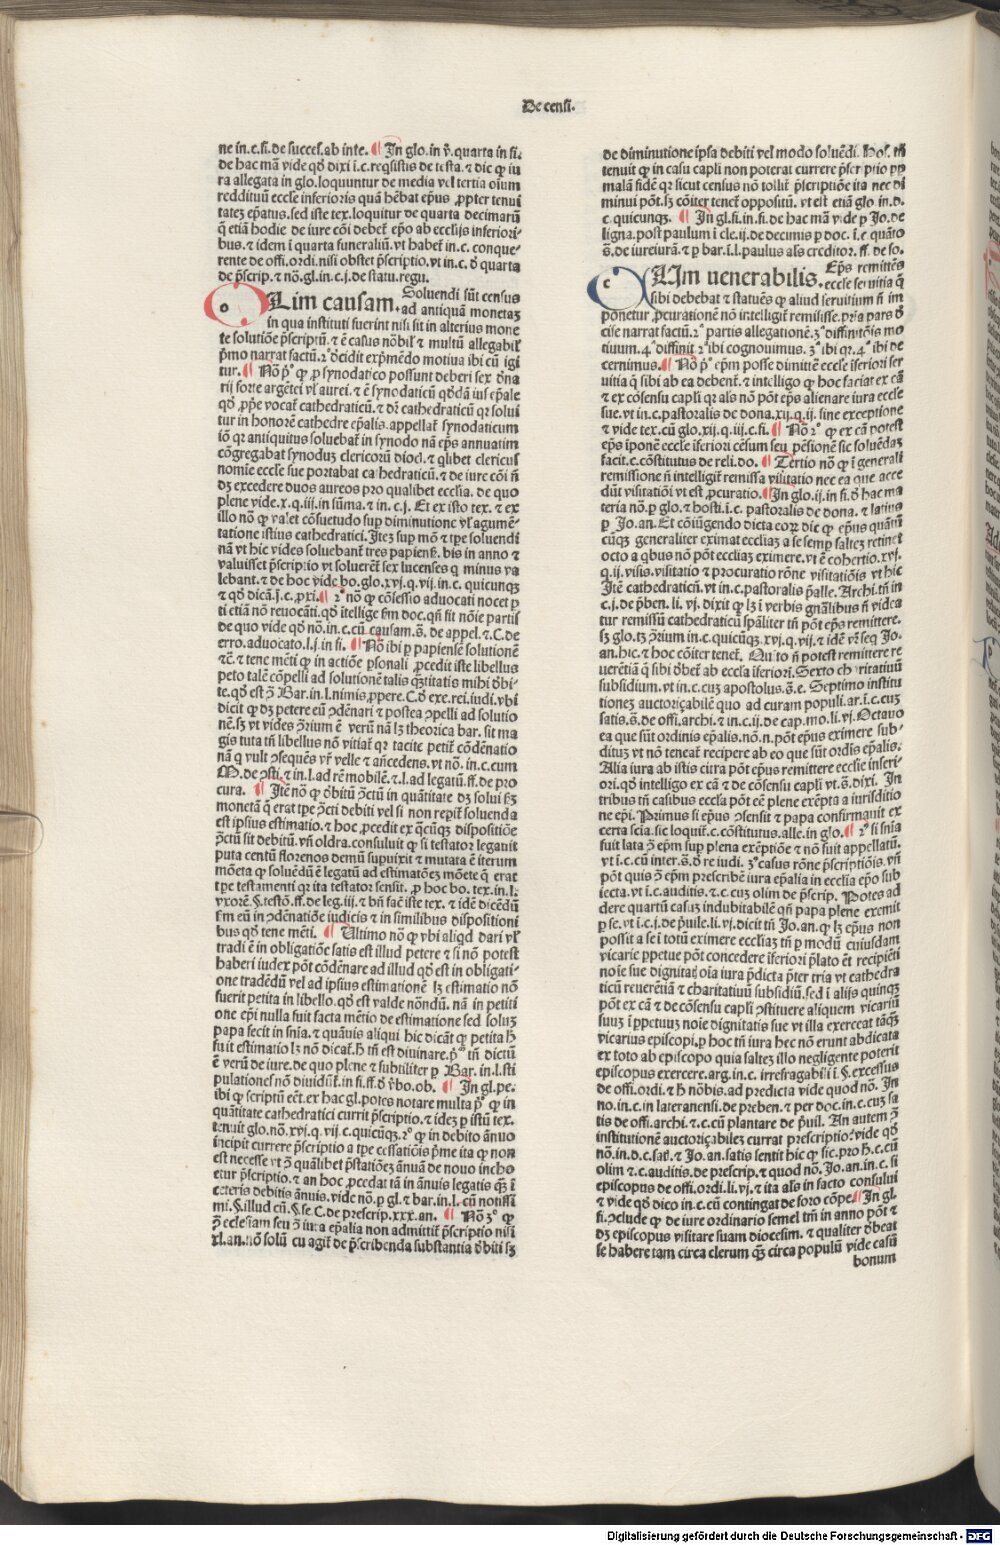 De censi.
ne in.c.fi.de succes.ab inte. In glo.in v̄.quarta in fi.
de hac mā vide qd̄ dixi ī.c.reqsistis de testa.⁊ dic ꝙ iu
ra allegata in glo.loquuntur de media vel tertia oīum
reddituū eccle inferioris quā hēbat ep̄us ,ppter tenui
tatez ep̄atus.sed iste tex.loquitur de quarta decimarū
q̄ etiā hodie de iure cōi debet ep̄o ab ecclijs inferiori-
bus.⁊ idem ī quarta funeraliū.vt habet in.c. conque-
rente de offi.ordi.nisi obstet p̄scriptio.vt in.c. d̄ quarta
de p̄scrip.⁊ nō.gl.in.c.j.de statu.regu.
o Lim causam. Soluendi sūt census
ad antiquā monetaz
in qua instituti fuerint nisi sit in alterius mone
te solutiōe p̄scriptū.⁊ ē casus nōbil' ⁊ multū allegabil'
p̄mo narrat factū.2° decidit exp̄mēdo motiua ibi cū igi
tur. Nō p° ꝙ p synodatico possunt deberi sex dēna
rij sorte argētei vl' aurei.⁊ ē synodaticū qddā ius ep̄ale
qd̄ ,ppe vocat cathedraticū.⁊ dr̄ cathedraticū qr solui
tur in honorē cathedre ep̄alis.appellat synodaticum
iō qr antiquitus soluebat in synodo nā ep̄s annuatim
cōgregabat synoduz clericorū dioc̄.⁊ qlibet clericus
nomīe eccle sue portabat cathedraticū.⁊ de iure cōi n̄
dz excedere duos aureos pro qualibet ecclia. de quo
plene vide.x.q.iii.in sūma.⁊ in. c.j. Et ex isto tex. ⁊ ex
illo nō ꝙ valet cōsuetudo sup diminutione vl' agumē-
tatione istius cathedratici. Itez sup mō ⁊ tpe soluendi
nā vt hic vides soluebant tres papiens. bis in anno ⁊
valuisset p̄scriptio vt soluerēt sex lucenses q minus va
lebant.⁊ de hoc vide bo.glo.xvj.q.vij.in c. quicunqz
⁊ qd̄ dicā.j.c.pxi. 2° nō ꝙ cōfessio aduocati nocet p
ti etiā nō reuocāti.qd̄ itellige fm doc.qn̄ fit nōie partis
de quo vide qd̄ nō.in.c.cū causam.s̄. de appel.⁊.C.de
erro.aduocato.l.j.in fi. Nō ibi p papiense solutionē
⁊c̄.⁊ tene mēti ꝙ in actiōe psonali pcedit iste libellus
peto talē cōpelli ad solutionē talis qztitatis mihi dbi-
te.qd̄ est ɔ̄ Bar.in l.nimis ,ppere.C.d̄ exe.rei.iudi.vbi
dicit ꝙ dz petere eū ɔdēnari ⁊ postea ɔpelli ad solutio
nē.sz vt vides ɔ̄rium ē verū nā lz theorica bar. sit ma
gis tuta tn̄ libellus nō vitiat qr tacite petit cōdēnatio
nā q vult ɔsequēs vr̄ velle ⁊ an̄cedens.vt nō. in.c.cum
M.de ɔsti.⁊ in.l.ad rē mobilē.⁊.l.ad legatū.ff.de pro
cura. Itē nō ꝙ debitū ɔtctū in quātitate dz solui fz
monetā q̄ erat tpe ɔtcti debiti vel si non reperit soluenda
est ipsius estimatio.⁊ hoc pcedit ex qcūqz dispositiōe
ɔtctū sit debitū.vn̄ oldra.consuluit ꝙ si testator legauit
puta centū florenos demū supuixit ⁊ mutata ē iterum
mōeta ꝙ soluēdū ē legatū ad estimatōez mōete q̄ erat
tpe testamenti qr ita testator sensit. p hoc bo. tex.in.l.
vxorē.§.testō.ff.de leg.iii.⁊ bn̄ faē iste tex. ⁊ idē dicēdū
fm eū in ɔdēnatiōe iudicis ⁊ in similibus dispositioni
bus qd̄ tene mēti. Ultimo nō ꝙ vbi aliqd dari vl'
tradi ē in obligatiōe satis est illud petere ⁊ si nō potest
haberi iudex pōt cōdēnare ad illud qd̄ est in obligati-
one tradēdū vel ad ipsius estimationē lz estimatio nō
fuerit petita in libello.qd̄ est valde nōndū. nā in petiti
one epi nulla fuit facta mētio de estimatione sed soluz
papa fecit in snia.⁊ quāuis aliqui hic dicāt ꝙ petita h̄
fuit estimatio lz nō dicat.h̄ tn̄ est diuinare.p̄° tn̄ dictū
ē verū de iure.de quo plene ⁊ subtiliter p Bar. in.l.sti
pulationes nō diuidūt.in fi.ff.d̄ v̄bo.ob. In gl.pe.
ibi ꝙ scriptū eēt.ex hac gl.potes notare multa p° ꝙ in
quātitate cathedratici currit p̄scriptio.⁊ idez p istū tex.
tenuit glo.nō.xvi.q.vij.c.quicūqz.2° ꝙ in debito ānuo
incipit currere p̄scriptio a tpe cessatiōis p̄me ita ꝙ non
est necesse vt ɔ̄ quālibet p̄statiōez ānuā de nouo incho
etur p̄scriptio.⁊ an hoc pcedat tā in ānuis legatis qz ī
ceteris debitis ānuis.vide nō.p gl.⁊ bar.in.l. cū notissi
mi.§.illud cū.§.se.C.de prescrip.xxx.an. Nō 3° ꝙ
ɔ̄ ecclesiam seu ɔ̄ iura ep̄alia non admittit p̄scriptio nisi
xl.an.nō solū cū agit de p̄scribenda substantia dbiti sz
de diminutione ipsa debiti vel modo soluēdi. Hos. tn̄
tenuit ꝙ in casu capli non poterat currere p̄scriptio pp
malā fidē qr sicut census nō tollit p̄scriptiōe ita nec di
minui pōt.sz cōiter tenet oppositū.vt est etiā glo in.d.
c.quicunqz. In gl.fi.in.fi.de hac mā vide p Jo.de
ligna.post paulum ī cle.ij.de decimis p doc. ī.c quāto
s̄.de iureiurā.⁊ p bar.ī.l.paulus als creditor.ff. de so.
c Um uenerabilis. Ep̄s remittēs
eccle seruitia q̄
sibi debebat ⁊ statuēs ꝙ aliud seruitium n̄ im
ponetur pcurationē nō intelligit remisisse. Pria pars d̄
cise narrat factū.2° partis allegationē.3° diffinitōis mo
tiuum.4° diffinit 2° ibi cognouimus. 3° ibi qr. 4° ibi de
cernimus. Nō p° ep̄m posse dimittē eccle iferiori ser
uitia q̄ sibi ab ea debent.⁊ intelligo ꝙ hoc faciat ex cā
⁊ ex cōsensu capli qr als nō pōt ep̄s alienare iura eccle
sue.vt in.c.pastoralis de dona.xij.q.ij. sine exceptione
⁊ vide tex.cū glo.xij.q.iij.c.fi. Nō 2° ꝙ ex cā potest
ep̄s ipōnē eccle iferiori cēsum seu pēsionē sic soluēdaz
facit.c.cōstitutus de reli.do. Tertio nō ꝙ ī generali
remissione n̄ intelligit remissa visitatio nec ea que acce
dūt visitatiōi vt est pcuratio. In glo.ij.in fi.d̄ hac ma
teria nō.p glo.⁊ hosti.ī.c. pastoralis de dona. ⁊ latius
p Jo.an. Et cōiūgendo dicta eorz dic ꝙ ep̄us quātū
cūqz generaliter eximat eccliaz a se semp saltez retinet
octo a qbus nō pōt eccliaz eximere.vt ē cohertio.xvj.
q.ij.visis.visitatio ⁊ procuratio rōne visitatiōis vt hic
Itē cathedraticū.vt in.c.pastoralis palle. Archi.tn̄ in
c.j.de p̄ben. li. vj. dixit ꝙ lz ī verbis gn̄alibus n̄ videa
tur remissū cathedraticū spāliter tn̄ pōt ep̄s remittere.
sz glo.tz ɔ̄rium in.c.quicūqz.xvj.q.vij.⁊ idē vr̄ seq̄ Jo.
an.hic.⁊ hoc cōiter tenet. Quīto n̄ potest remittere re
uerētiā q̄ sibi dbet ab eccla iferiori. Sexto charitatiuū
subsidium.vt in.c.cuz apostolus.s̄.e. Septimo institu
tionez auctoriçabilē quo ad curam populi.ar.ī.c.cuz
satis.s̄.de offi.archi.⁊ in.c.ij.de cap.mo.li.vj. Octauo
ea que sūt ordinis ep̄alis.nō.n.pōt ep̄us eximere sub-
dituz vt nō teneat recipere ab eo que sūt ordīs ep̄alis.
Alia iura ab istis citra pōt ep̄us remittere ecclie inferi-
ori.qd̄ intelligo ex cā ⁊ de cōsensu capli vt.s̄.dixi. In
tribus tn̄ casibus eccla pōt eē plene exēpta a iurisditio
ne epi. Primus si ep̄us ɔsensit ⁊ papa confirmauit ex
certa scia.sic loquit.c.cōstitutus.alle.in glo. 2° si snia
fuit lata ɔ̄ ep̄m sup plena exēptiōe ⁊ nō fuit appellatū.
vt ī.c.cū inter.s̄.d̄ re iudi. 3° casus rōne p̄scriptiōis.vn̄
pōt quis ɔ̄ ep̄m prescribē iura ep̄alia in ecclia ep̄o sub
iecta.vt ī.c.auditis.⁊.c.cuz olim de p̄scrip. Potes ad
dere quartū casuz indubitabilē qn̄ papa plene exemit
p se.vt ī.c.j.de p̄uile.li.vj.dicit tn̄ Jo.an.ꝙ lz ep̄us non
possit a se ī totū eximere eccliaz tn̄ p modū cuiusdam
vicarie ppetue pōt concedere iferiori p̄lato ēt recipiēti
noīe sue dignitat oīa iura p̄dicta p̄ter tria vt cathedra
ticū reuerētiā ⁊ charitatiuū subsidiū.sed ī alijs quinqz
pōt ex cā ⁊ de cōsensu capli ɔstituere aliquem vicariū
suuz ī ppetuuz noīe dignitatis sue vt illa exerceat tāqz
vicarius episcopi.p hoc tn̄ iura hec nō erunt abdicata
ex toto ab episcopo quia saltez illo negligente poterit
episcopus exercere.arg.in.c. irrefragabili ī.§.excessus
de offi.ordi.⁊ h̄ nōbis.ad predicta vide quod nō. In
no.in.c.in lateranensi.de preben.⁊ per doc.in.c.cuz sa
tis de offi.archi.⁊.c.cū plantare de p̄uil. An autem ɔ̄
institutionē auctoriçabilez currat prescriptio.vide qd̄
nō.in.d.c.sat.⁊ Jo.an.satis sentit hic ꝙ sic.pro h̄.c.cū
olim ⁊.c.auditis.de prescrip.⁊ quod nō. Jo.an.in.c. si
episcopus de offi.ordi.li.vj.⁊ ita als in facto consului
⁊ vide qd̄ dico in.c.cū contingat de foro cōpe. In gl.
fi.ɔclude ꝙ de iure ordinario semel tm̄ in anno pōt ⁊
dz episcopus visitare suam diocesim. ⁊ qualiter dbeat
se habere tam circa clerum qz circa populū vide casū
bonum
Digitalisierung gefördert durch die Deutsche Forschungsgemeinschaft - DFG